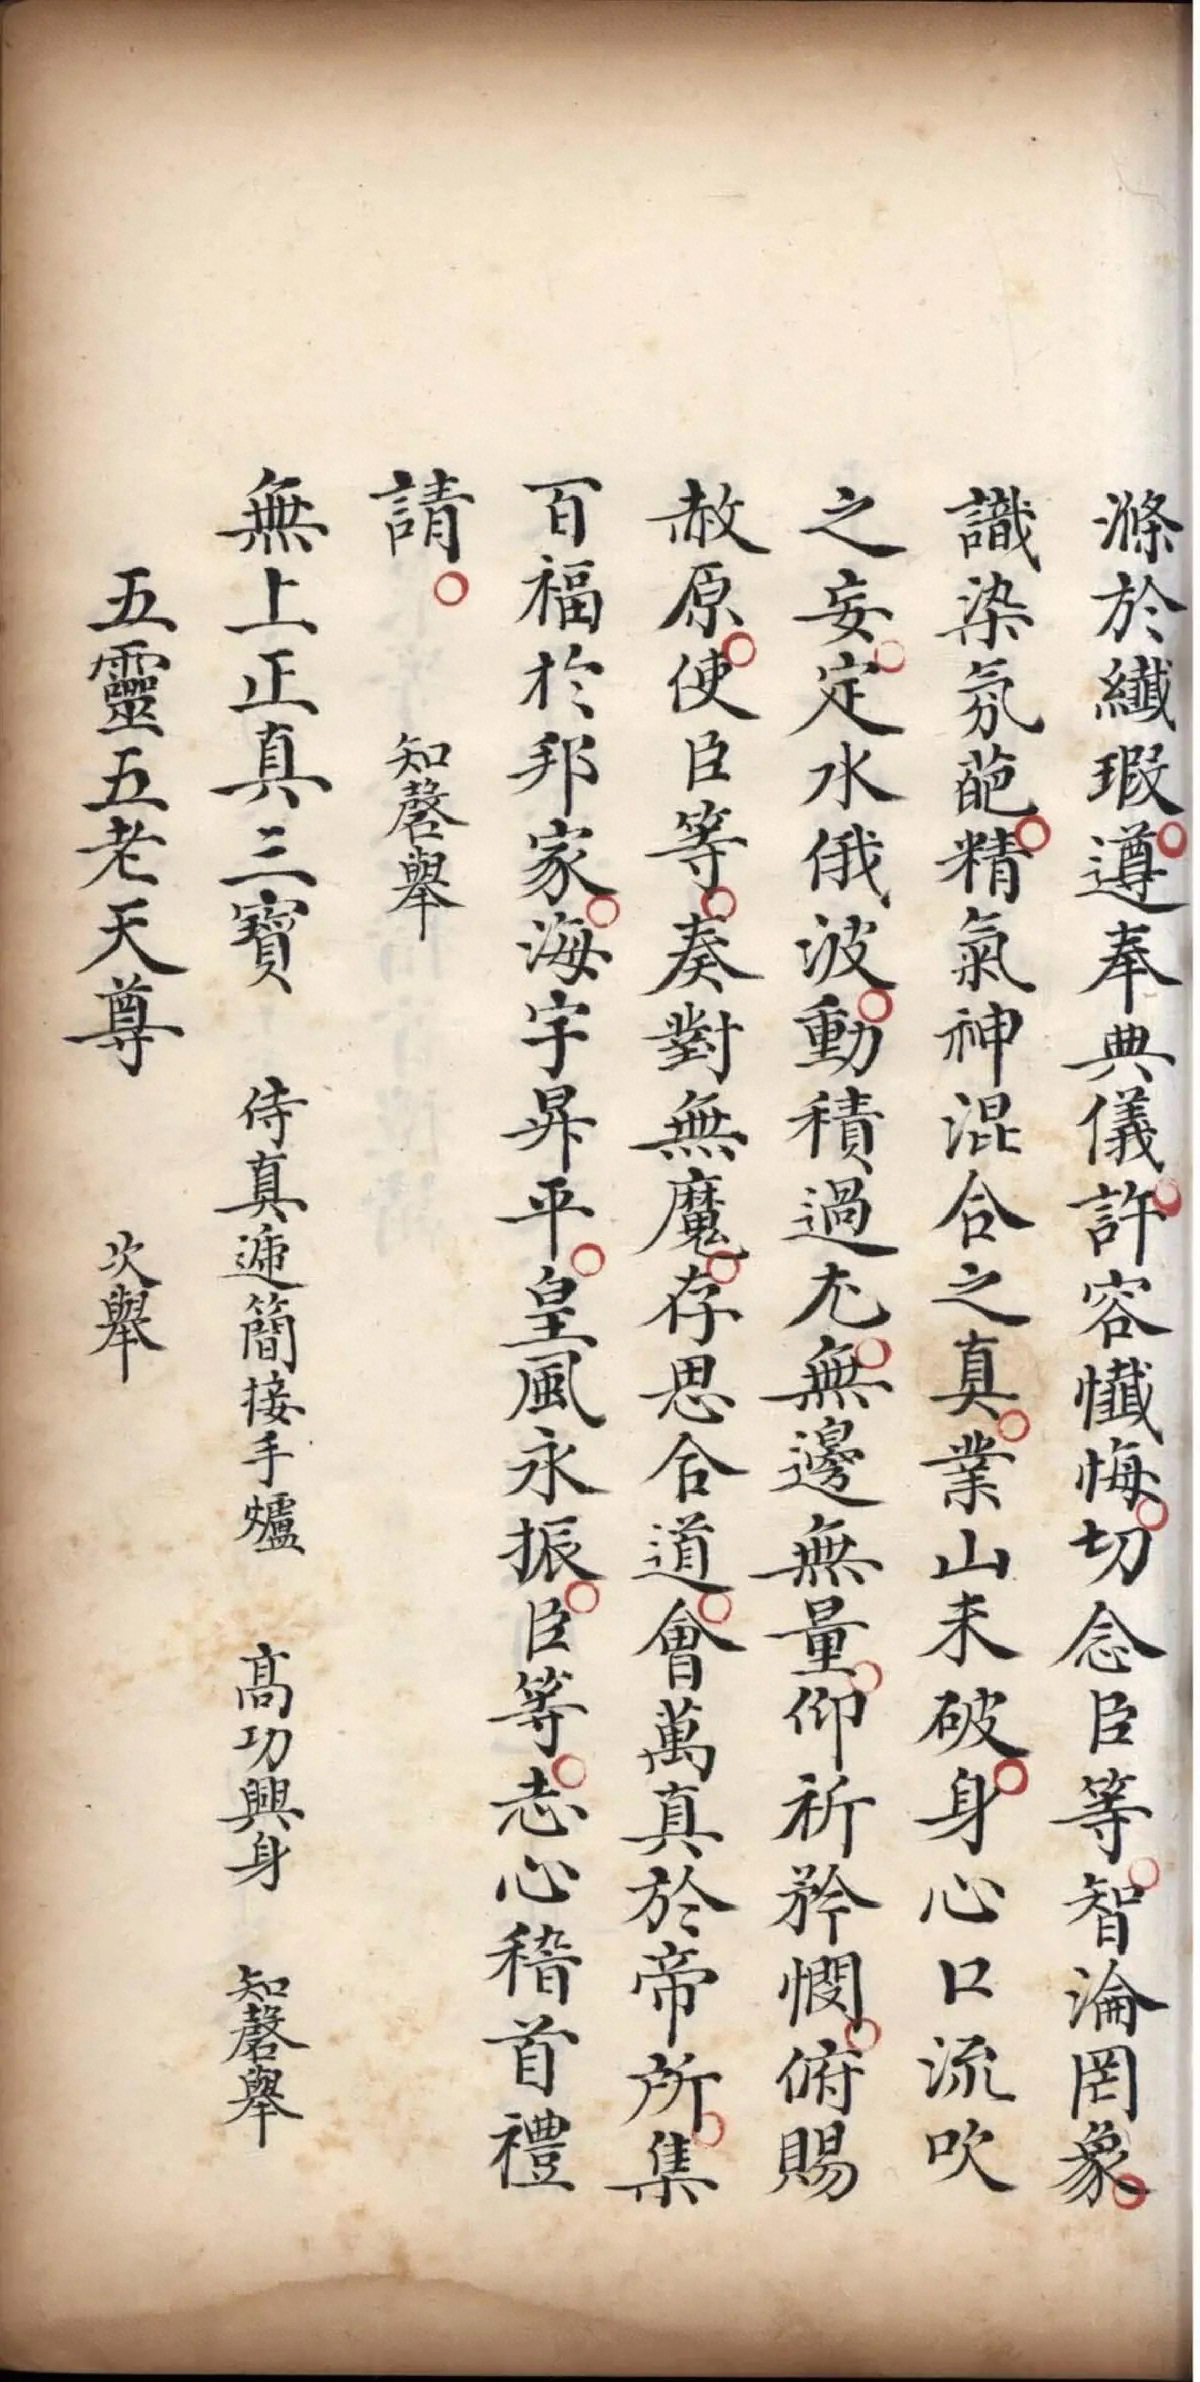 滌於纖瑕遵奉典儀許容懺悔切念臣等智淪罔象
識染氛葩精氣神混合之真業山未破身心口流吹
之妄定水俄波動積過尤無邊無量仰祈矜憫俯賜
赦原使臣等奏對無魔存思合道會萬真於帝所集
百福於邦家海宇昇平皇風永振臣等志心稽首禮
請 知磬舉
無上正真三寶 侍真遞簡接手爐 高功興身 知磬舉
五靈五老天尊 次舉